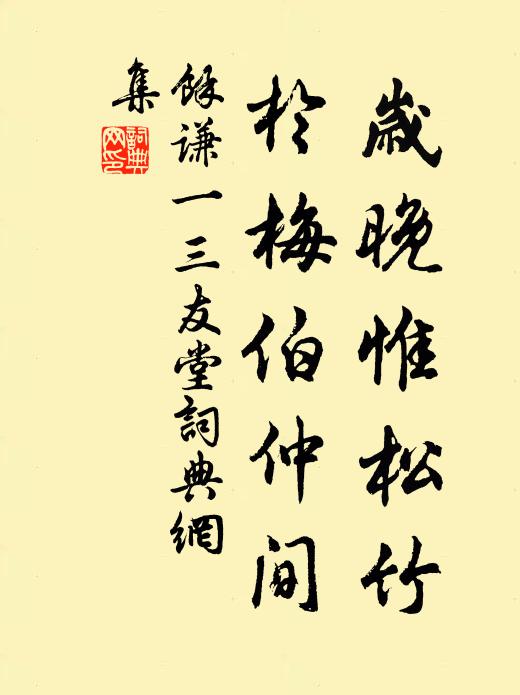 歲晚惟松竹
於梅伯仲間
餘謙一三友堂詞典網
集
詞典網印